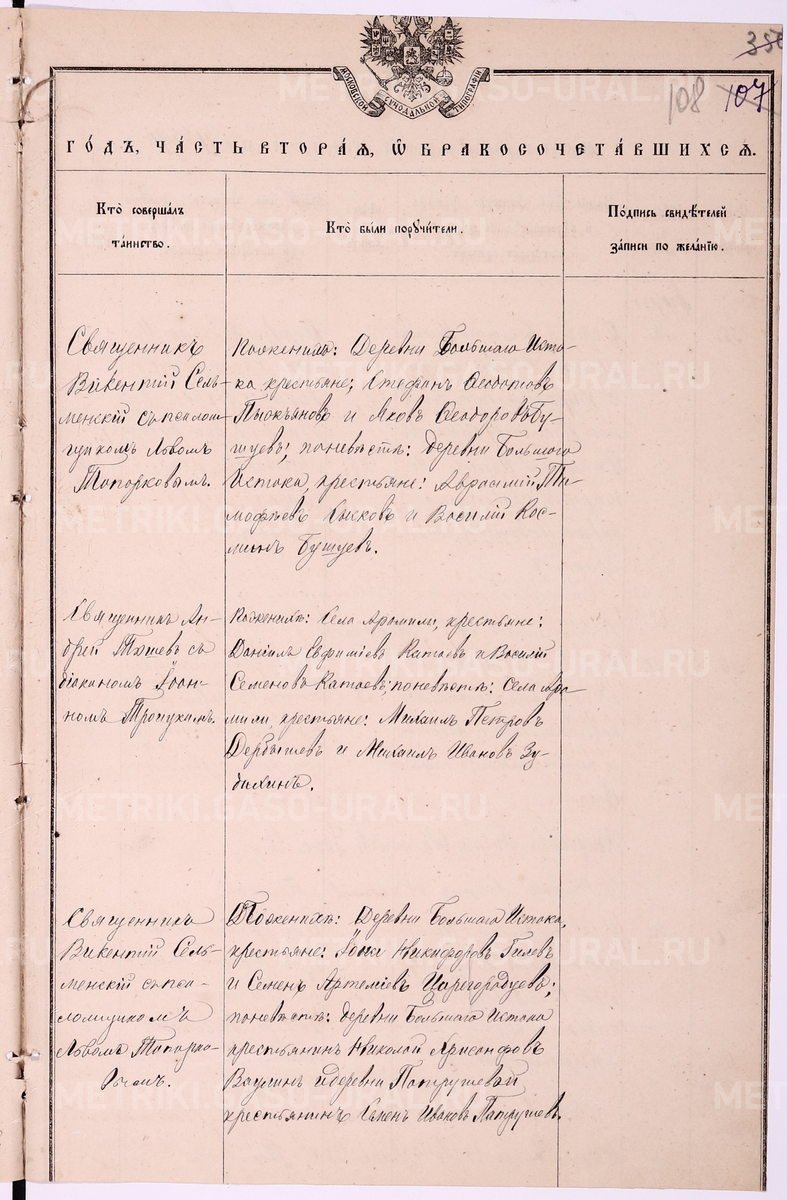 350
108 107
МОСКОВСКОЙ СѴНОДАЛЬНОЙ ТИПОГРАФІИ
ГО́ДЪ, ЧА́СТЬ ВТОРА́Я, Ѡ҆ БРАКОСОЧЕТА́ВШИХСЯ.
Кто̀ соверша́лъ
та́инство.
Кто̀ бы́ли поручи́тели.
По́дпись свидѣ́телей
за́писи по жела́нїю.
Священникъ
Викентій Сель-
менскій съ псалом-
щикомъ Львомъ
Топорковымъ.
По женихѣ: Деревни Большаго Исто-
ка крестьяне; Стефанъ Ѳеодотовъ
Пьюкьяновъ и Яковъ Ѳеодоровъ Бу-
шуевъ; по невѣстѣ: деревни Большого
Истока, крестьяне: Авраамій Ти-
мофѣевъ Лысковъ и Василій Кос-
минъ Бушуевъ.
Священникъ Ан-
дрей Тяшевъ съ
діакономъ Іоан-
номъ Тропухинъ.
По женихѣ: Села Арамили, крестьяне:
Даніилъ Евфиміевъ Катаевъ и Василій
Семеновъ Катаевъ; по невѣстѣ: Села Ара-
мили, крестьяне: Михаилъ Петровъ
Дербышевъ и Михаилъ Ивановъ Зу-
бихинъ.
Священникъ
Викентій Сель-
менскій съ пса-
ломщикомъ
Львомъ Топорко-
вымъ.
По женихѣ: Деревни Большаго Истока,
крестьяне: Іона Никифоровъ Гилевъ
и Семенъ Артеміевъ Царегородцевъ;
по невѣстѣ: деревни Большаго Истока
крестьянинъ Николай Хрисанфовъ
Ваулинъ и деревни Патрушевой
крестьянинъ Семенъ Ивановъ Патрушевъ.
METRIKI.GASO-URAL.RU